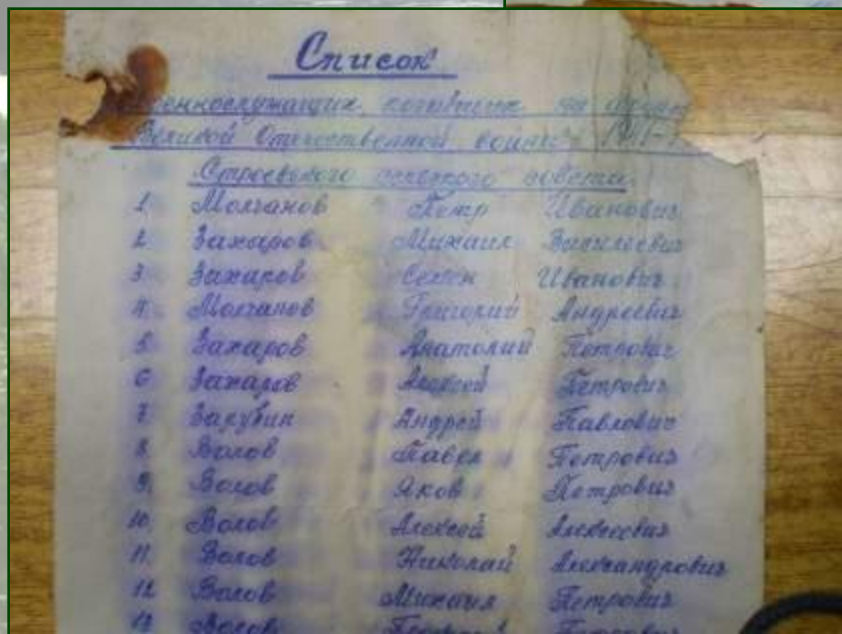 Список
военнослужащих, погибших на фронте
Великой Отечественной войны 1941-
Строевского сельского совета.
1. Молчанов Петр Иванович
2. Захаров Михаил Васильевич
3. Захаров Семен Иванович
4. Молчанов Григорий Андреевич
5. Захаров Анатолий Петрович
6. Захаров Алексей Петрович
7. Зарубин Андрей Павлович
8. Волов Павел Петрович
9. Волов Яков Петрович
10. Волов Алексей Алексеевич
11. Волов Николай Александрович
12. Волов Михаил Петрович
13. Волов Петрович